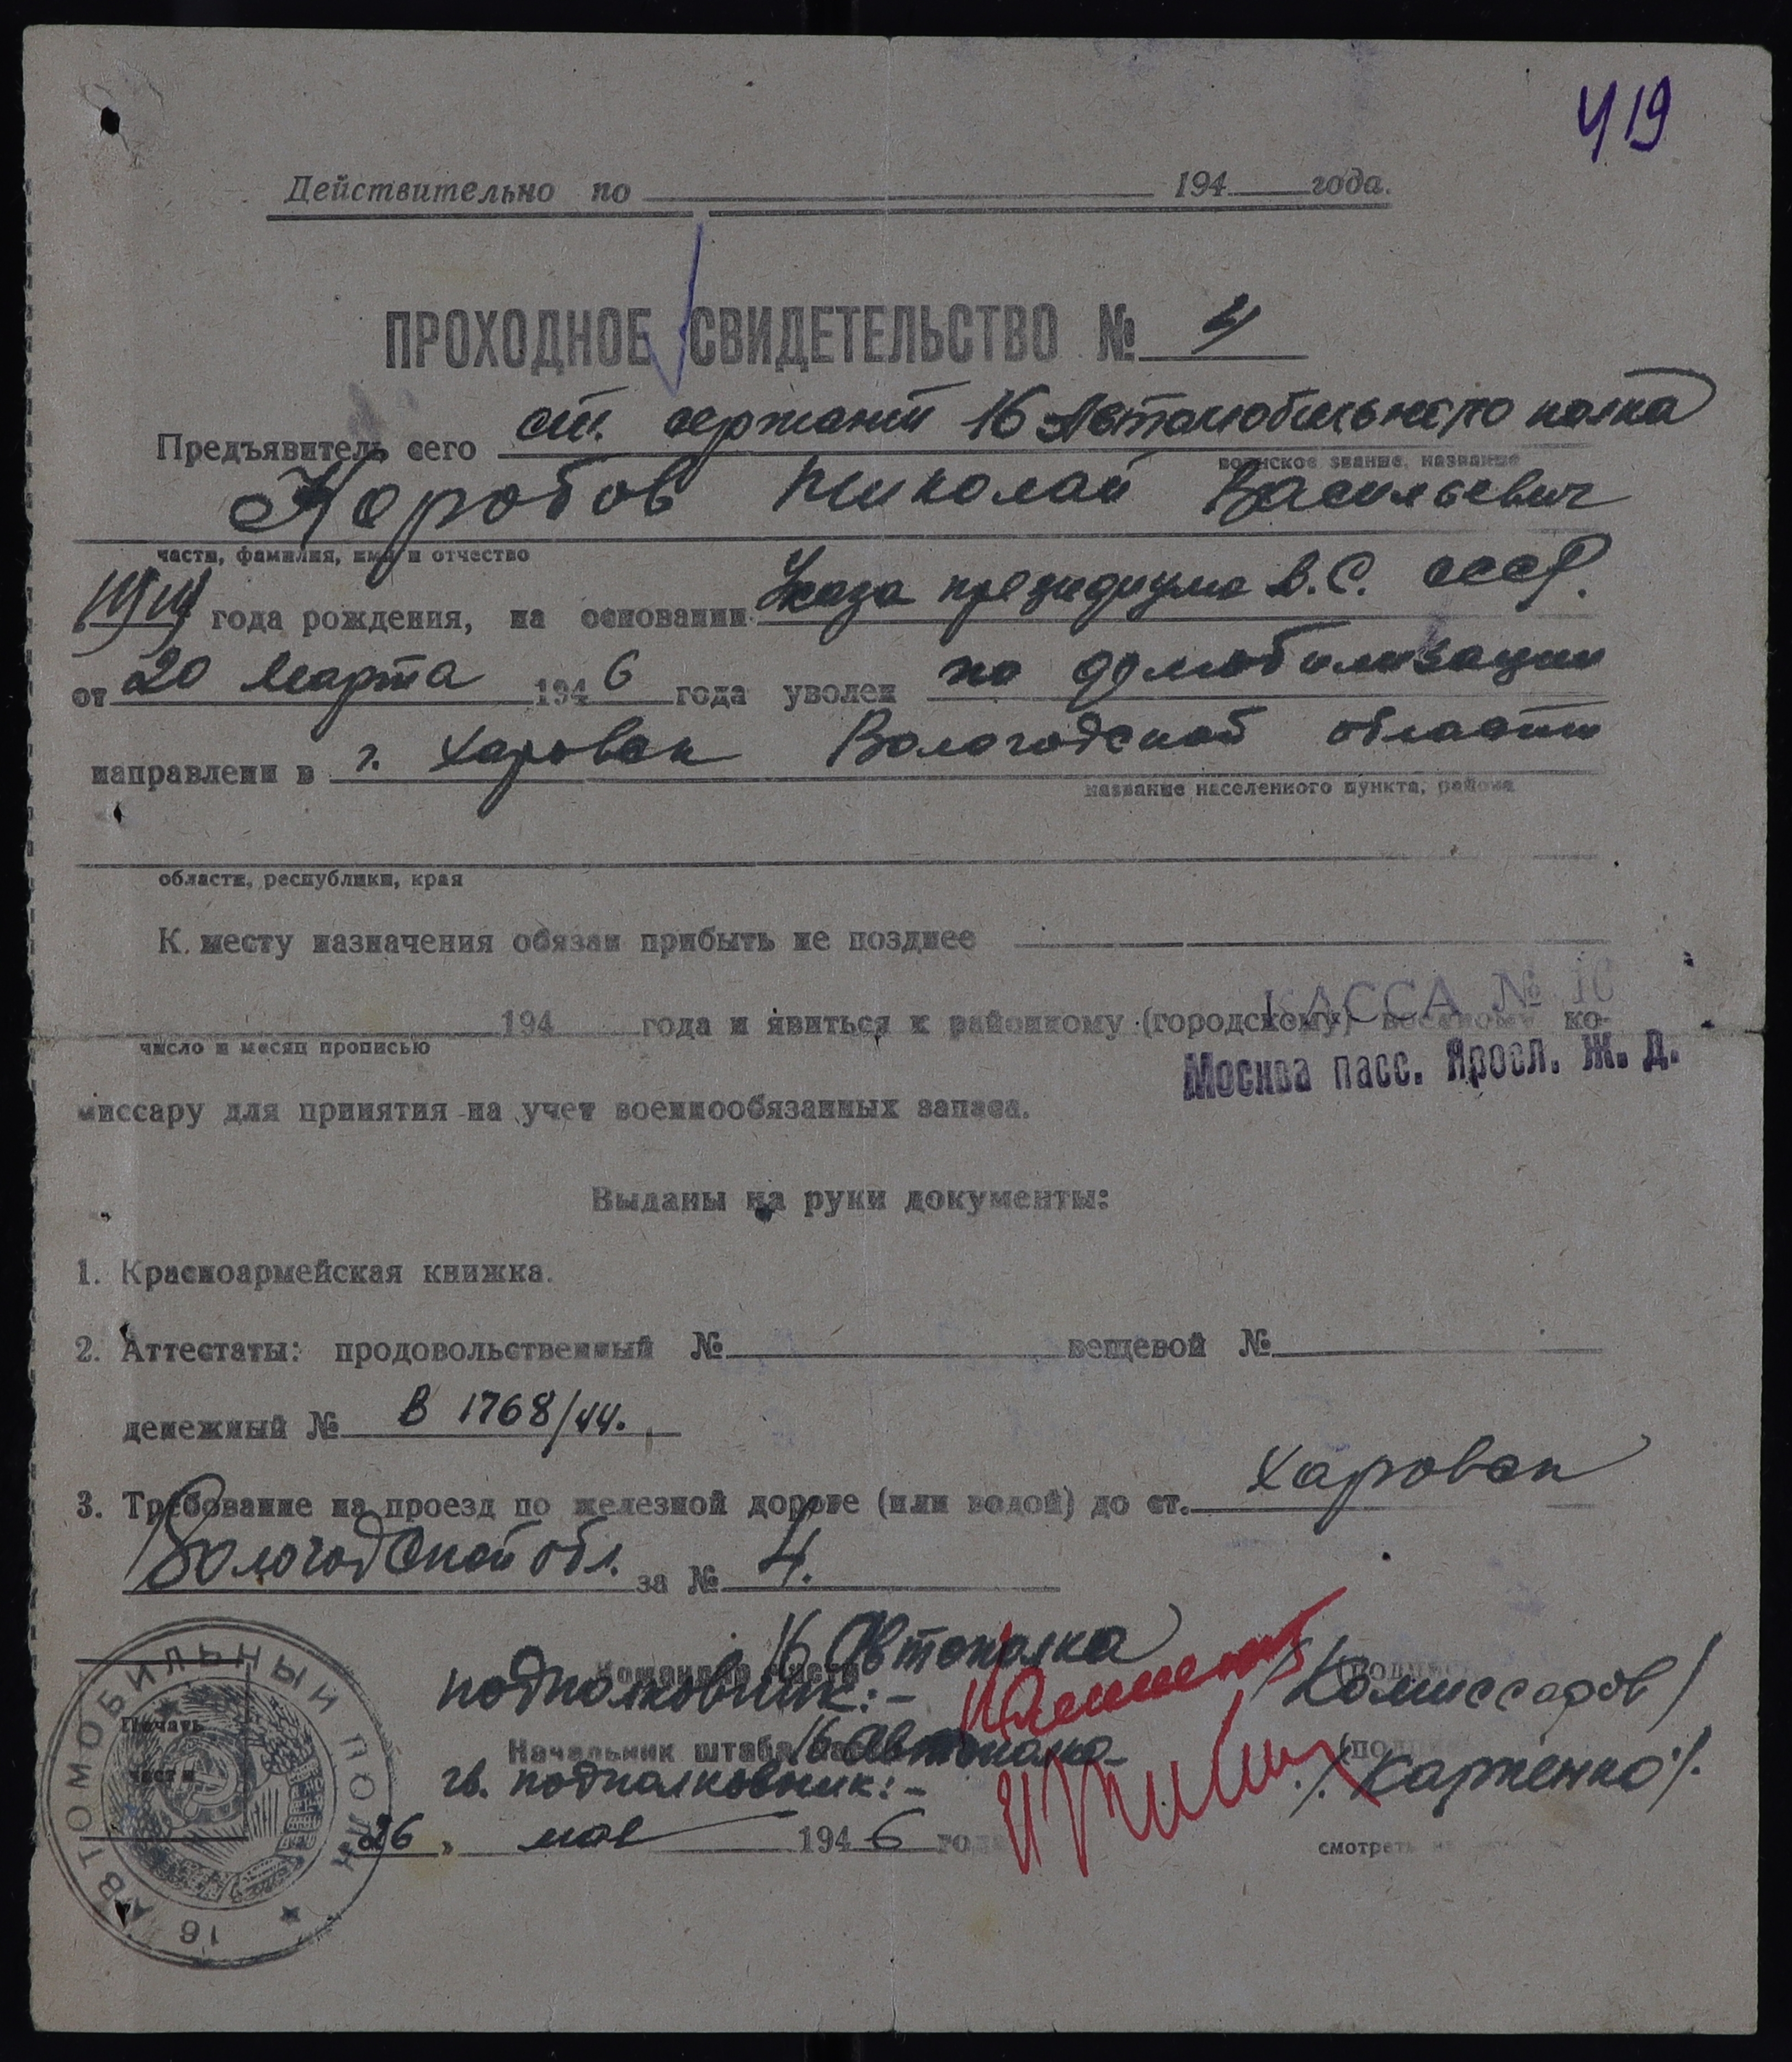 419
Действительно по 194 года.
ПРОХОДНОЕ СВИДЕТЕЛЬСТВО № 4
Предъявитель сего ст. сержант 16 Автомобильного полка
воинское звание, название
Коробов Николай Васильевич
части, фамилия, имя и отчество
года рождения, на основании Указа президиума В.С. СССР.
от 20 марта 1946 года уволен по демобилизации
направлени в г. Харовск Вологодской области
название населенного пункта, района
области, республики, края
К месту назначения обязан прибыть не позднее
194 года и явиться к районному (городскому) военному ко-
КАССА № 10
число и месяц прописью
Москва пасс. Яросл. Ж. Д.
миссару для принятия на учет военнообязанных запаса.
Выданы на руки документы:
1. Красноармейская книжка.
2. Аттестаты: продовольственный № вещевой №
денежный № В 1768/44.
3. Требование на проезд по железной дороге (или водой) до ст. Харовск
Вологодской обл. за № 4.
Командир части 16 Автополка
подполковник:- /Комиссаров/
Начальник штаба 16 Автополка
гв. подполковник:- /Карпенко/.
26 " мая 1946 года
смотреть
Печать
части
16 АВТОМОБИЛЬНЫЙ ПОЛК